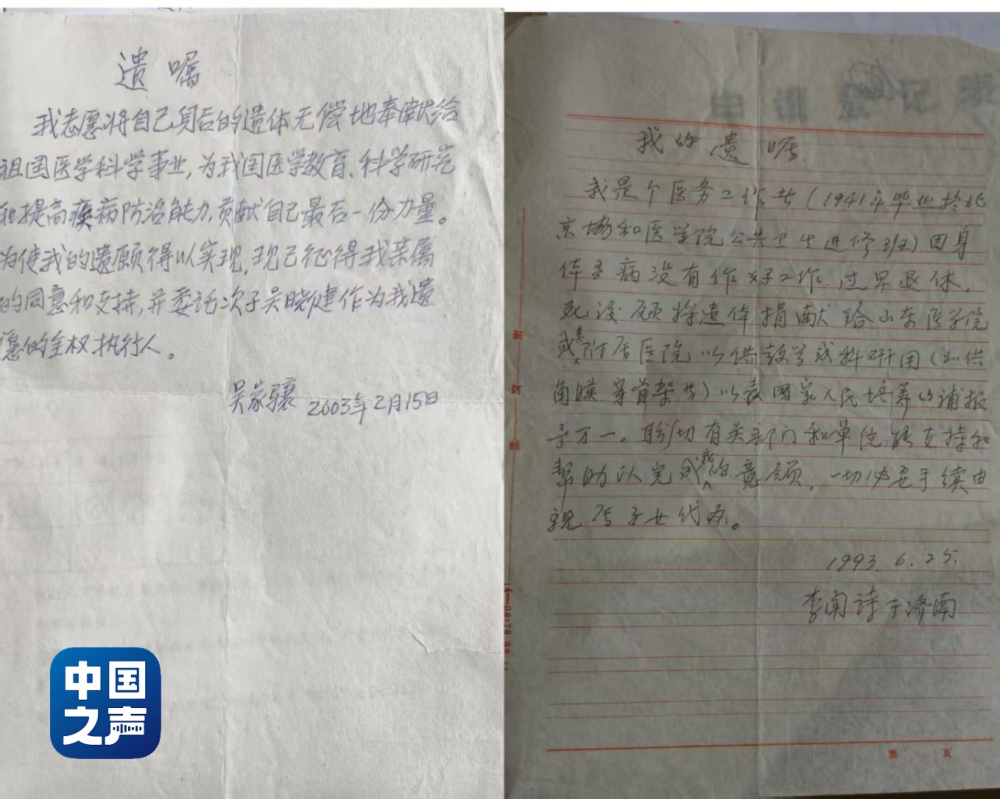 遗嘱
我志愿将自己身后的遗体无偿地奉献给
祖国医学科学事业，为我国医学教育、科学研究
和提高疾病防治能力，贡献自己最后一份力量。
为使我的遗愿得以实现，现已征得我亲属
的同意和支持，并委托次子吴晓健作为我遗
愿的全权执行人。
吴家骧 2003年2月15日
我的遗嘱
我是个医务工作者（1941年毕业於北
京协和医学院公共卫生进修班）因身
体多病没有作好工作，过早退休，
死後愿将遗体捐献给山东医学院
或其附属医院以供教学或科研用（如供
角膜、骨骼等）以表国家人民培养的
于万一。盼切有关部门和单位能支持和
帮助以完成我的意愿。一切必要手续由
亲属子女代办。
1993.6.25.
李闻诗于济南
装订线
第 页
中国
之声